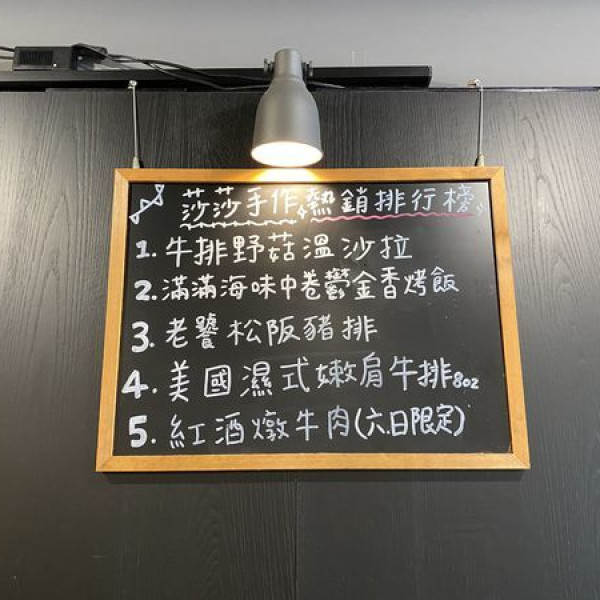 莎莎手作熱銷排行榜
1. 牛排野菇溫沙拉
2. 滿滿海味中卷鬱金香烤飯
3. 老饕松阪豬排
4. 美國濕式嫩肩牛排8oz
5. 紅酒燉牛肉(六.日限定)